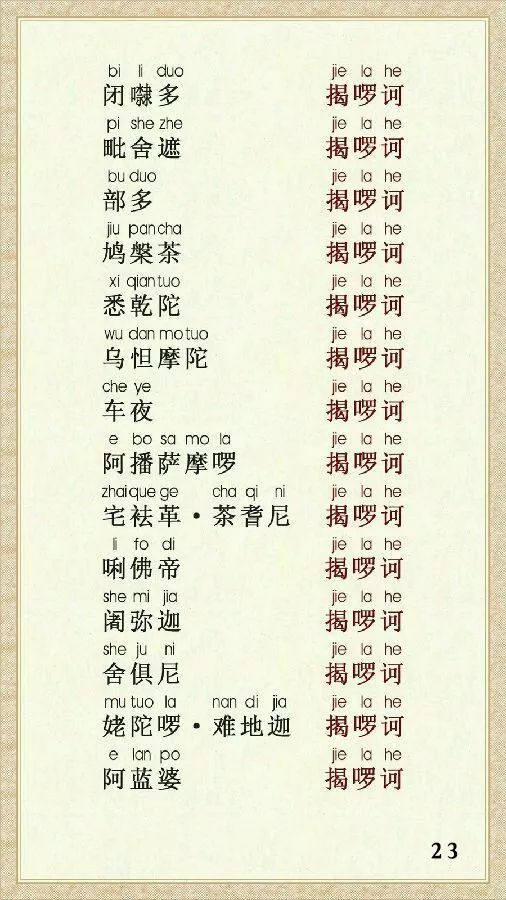 bi li duo jie la he
闭㘑多 揭啰诃
pi she zhe jie la he
毗舍遮 揭啰诃
bu duo jie la he
部多 揭啰诃
jiu pan cha jie la he
鸠槃茶 揭啰诃
xi qian tuo jie la he
悉乾陀 揭啰诃
wu dan mo tuo jie la he
乌怛摩陀 揭啰诃
che ye jie la he
车夜 揭啰诃
e bo sa mo la jie la he
阿播萨摩啰 揭啰诃
zhai que ge cha qi ni jie la he
宅袪革·茶耆尼 揭啰诃
li fo di jie la he
唎佛帝 揭啰诃
she mi jia jie la he
阇弥迦 揭啰诃
she ju ni jie la he
舍俱尼 揭啰诃
mu tuo la nan di jia jie la he
姥陀啰·难地迦 揭啰诃
e lan po jie la he
阿蓝婆 揭啰诃
23